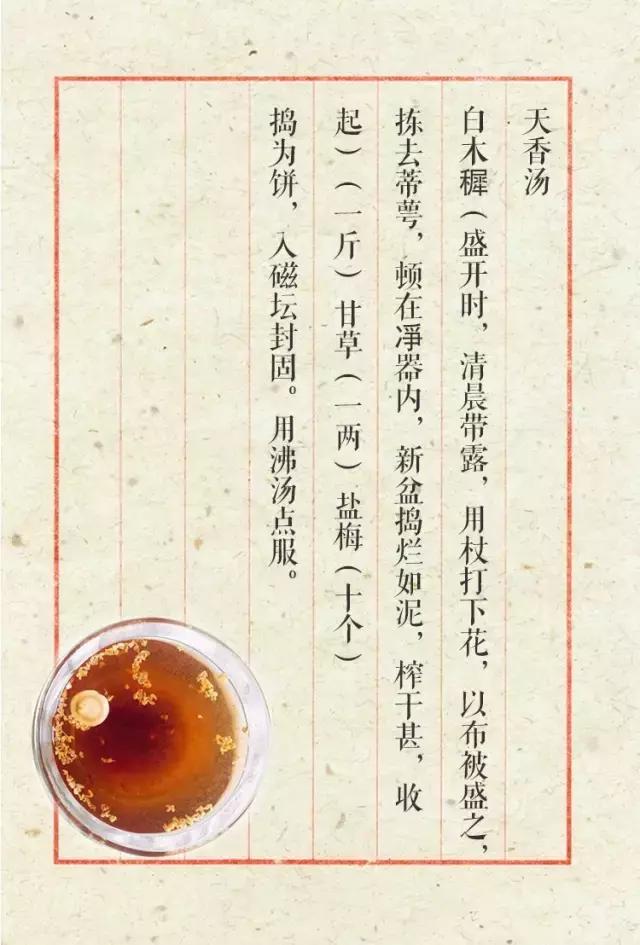 天香汤
白木穉（盛开时，清晨带露，用杖打下花，以布被盛之，
拣去蒂萼，顿在凈器内，新盆捣烂如泥，榨干甚，收
起）（一斤）甘草（一两）盐梅（十个）
捣为饼，入磁坛封固。用沸汤点服。